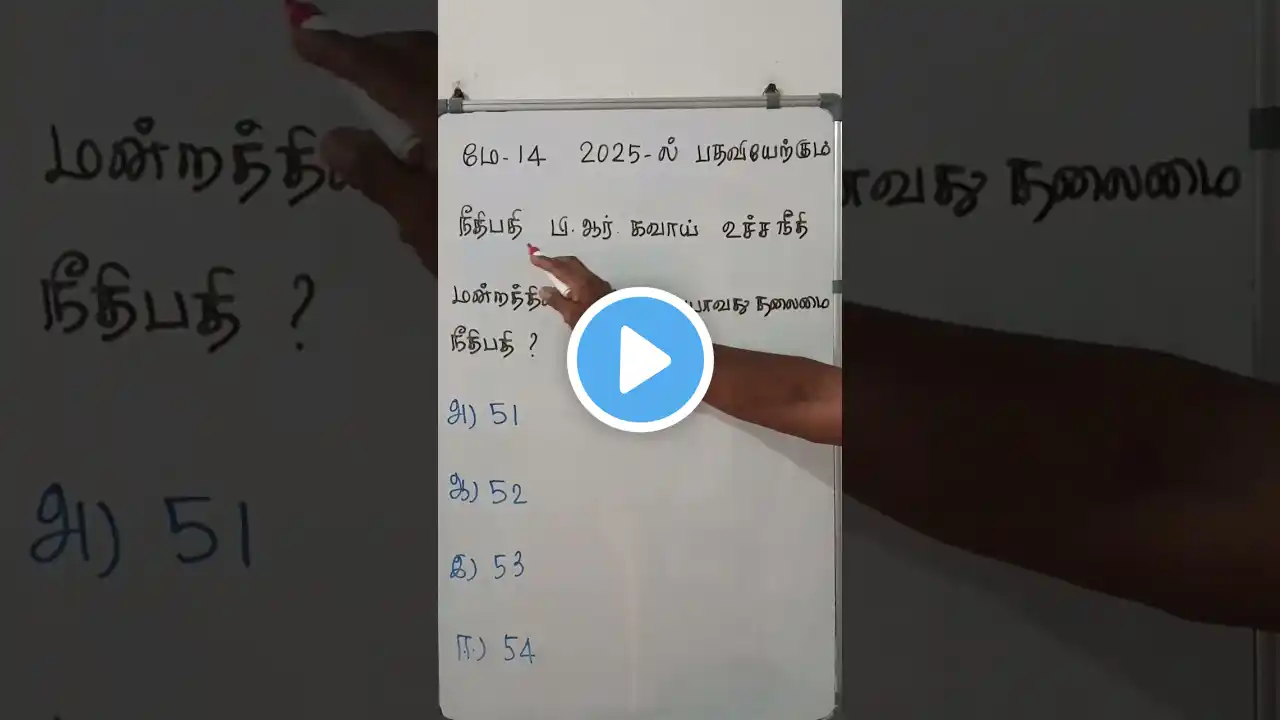 மே-14 2025-ல் பதவியேற்கும்
நீதிபதி பி.ஆர். கவாய் உச்சநீதி
தலைமை
நீதிபதி ?
அ) 51
ஆ) 52
இ) 53
ஈ) 54